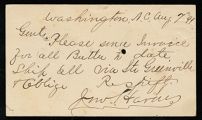 Washington, N.C, Aug 7th 91
Gents, Please send Invoice
for all Butter to date,
Ship all via Str Greenville
& Oblige
Respty
Jno.